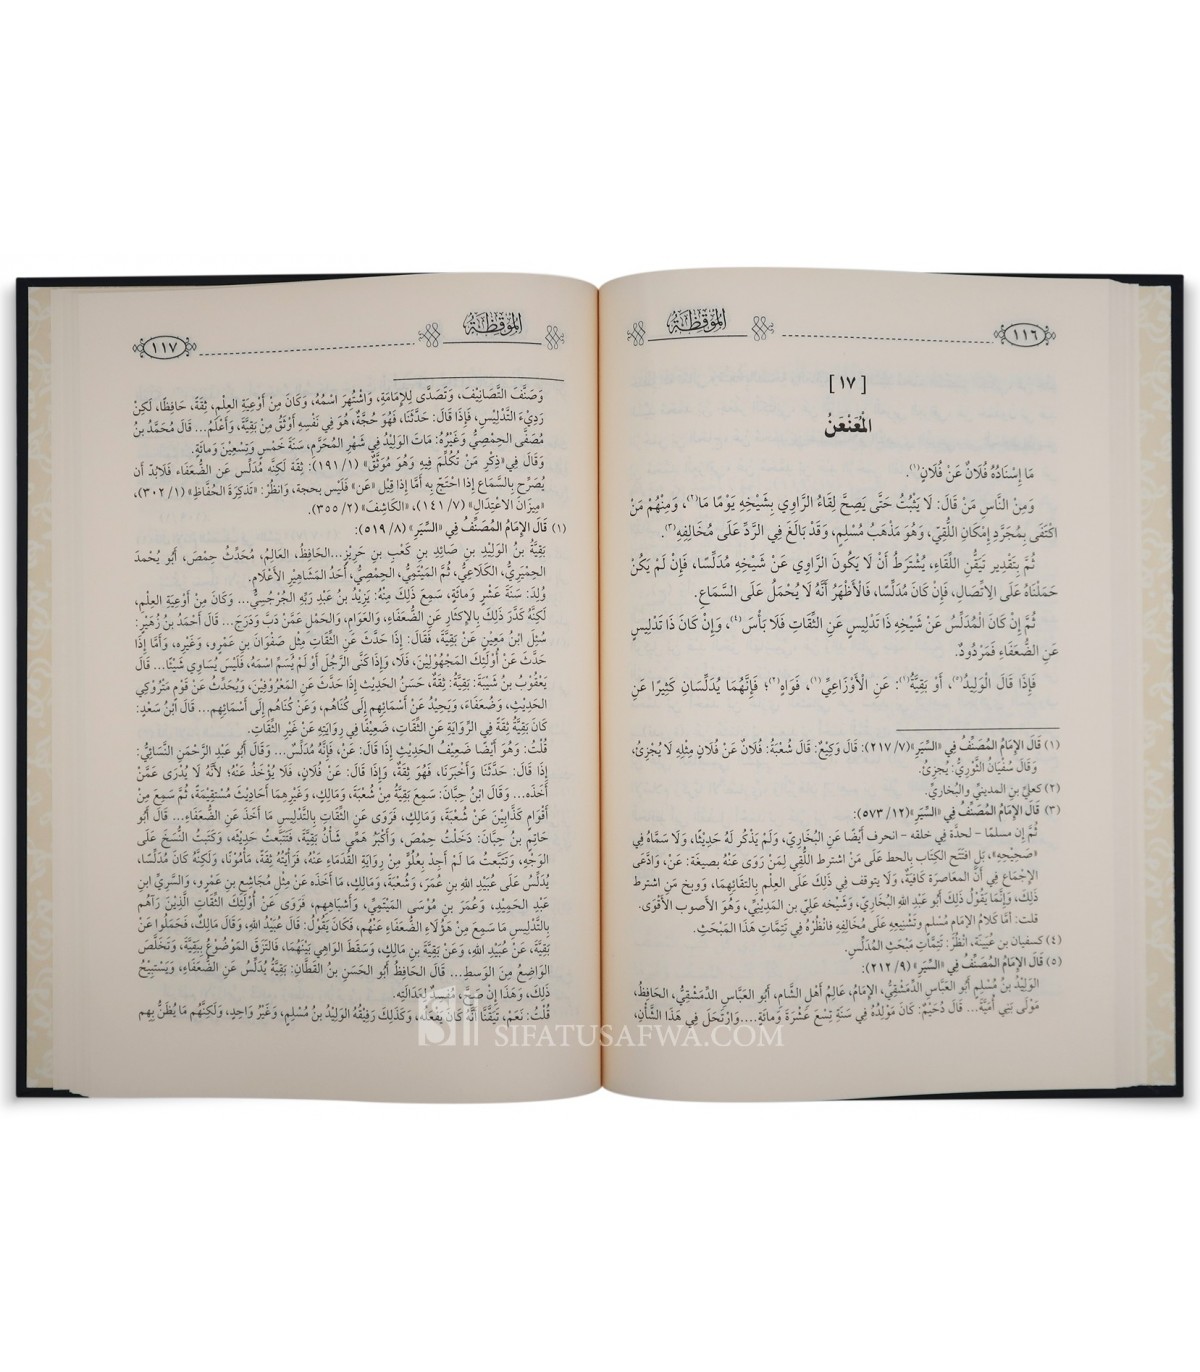 ١١٦
الموقظة
[١٧]
المُعَنْعَنُ
مَا إِسْنَادُهُ فُلَانٌ عَنْ فُلَانٍ(١).
وَمِنَ النَّاسِ مَنْ قَالَ: لَا يَثْبُتُ حَتَّى يَصِحَّ لِقَاءُ الرَّاوِي بِشَيْخِهِ يَوْمًا مَا(٢)، وَمِنْهُمْ مَنْ
اكْتَفَى بِمُجَرَّدِ إِمْكَانِ اللُّقِيِّ، وَهُوَ مَذْهَبُ مُسْلِمٍ، وَقَدْ بَالَغَ فِي الرَّدِّ عَلَى مُخَالِفِهِ(٣).
ثُمَّ بِتَقْدِيرِ تَيَقُّنِ اللِّقَاءِ، يُشْتَرَطُ أَنْ لَا يَكُونَ الرَّاوِي عَنْ شَيْخِهِ مُدَلِّسًا، فَإِنْ لَمْ يَكُنْ
حَمَلْنَاهُ عَلَى الِاتِّصَالِ، فَإِنْ كَانَ مُدَلِّسًا، فَالْأَظْهَرُ أَنَّهُ لَا يُحْمَلُ عَلَى السَّمَاعِ.
ثُمَّ إِنْ كَانَ المُدَلِّسُ عَنْ شَيْخِهِ ذَا تَدْلِيسٍ عَنِ الثِّقَاتِ فَلَا بَأْسَ(٤)، وَإِنْ كَانَ ذَا تَدْلِيسٍ
عَنِ الضُّعَفَاءِ فَمَرْدُودٌ.
فَإِذَا قَالَ الْوَلِيدُ(٥)، أَوْ بَقِيَّةُ(١): عَنِ الْأَوْزَاعِيِّ(١)، فَوَاهٍ(٢)؛ فَإِنَّهُمَا يُدَلِّسَانِ كَثِيرًا عَنِ
(١) قَالَ الإِمَامُ المُصَنِّفُ فِي «السِّيَرِ» (٧/ ٢١٧): قَالَ وَكِيْعٌ: قَالَ شُعْبَةُ: فُلَانٌ عَنْ فُلَانٍ مِثْلِهِ لَا يُجْزِئُ،
وَقَالَ سُفْيَانُ الثَّوْرِيُّ: يُجزِئُ.
(٢) كعليِّ بنِ المدينيِّ والبُخاريِّ.
(٣) قَالَ الإِمَامُ المُصَنِّفُ فِي «السِّيَرِ» (١٢/ ٥٧٣):
ثُمَّ إن مسلمًا - لحدَّة في خلقه - انحرف أيضًا عن البُخَارِيِّ، وَلَمْ يَذْكُر لَهُ حَدِيْثًا، وَلَا سَمَّاه فِي
«صَحِيْحِهِ»، بَل افتَتَحَ الكِتَابَ بِالحط عَلَى مَن اشترط اللُّقِي لِمَنْ رَوَى عَنْهُ بصيغَة: عَنْ، وَادَّعَى
الإِجْمَاع فِي أَنَّ المعَاصرَة كَافيَةٌ، وَلَا يتوقف فِي ذَلِكَ عَلَى العِلْم بِالتقَائِهِمَا، وَوبخ مَن اشترط
ذَلِكَ، وَإِنَّمَا يَقُولُ ذَلِكَ أَبُو عَبدِ اللهِ البُخَارِيُّ، وَشَيْخُه عَلِيّ بن المَدِيْنِيِّ، وَهُوَ الأَصوب الأَقْوَى.
قلت: أمَّا كَلَامُ الإمامِ مُسْلمٍ وَتَشْنِيعِهِ عَلَى مُخَالِفِهِ فانظُرْهُ فِي تَتِمَّاتِ هَذَا المَبْحَثِ.
(٤) كسفيان بن عُيَينَة، انْظُرْ: تَتِمَّاتِ مَبْحَثِ المُدَلِّسِ.
(٥) قَالَ الإِمَامُ المُصَنِّفُ فِي «السِّيَرِ» (٩/ ٢١٢):
الوَلِيْدُ بنُ مُسْلِمٍ أَبُو العَبَّاسِ الدِّمَشْقِيُّ، الإِمَامُ، عَالِمُ أَهْلِ الشَّامِ، أَبُو العَبَّاسِ الدِّمَشْقِيُّ، الحَافِظُ،
مَوْلَى بَنِي أُمَيَّةَ... قَالَ دُحَيْمٌ: كَانَ مَوْلِدُهُ فِي سَنَةِ تِسْعَ عَشْرَةَ وَمائَةٍ....وَارْتَحَلَ فِي هَذَا الشَّأْنِ،
الموقظة
١١٧
وَصَنَّفَ التَّصَانِيْفَ، وَتَصَدَّى لِلإِمَامَةِ، وَاشْتُهِرَ اسْمُهُ، وَكَانَ مِنْ أَوْعِيَةِ العِلْمِ، ثِقَةً، حَافِظًا، لَكِنْ
رَدِيْءَ التَّدْلِيْسِ، فَإِذَا قَالَ: حَدَّثَنَا، فَهُوَ حُجَّةٌ، هُوَ فِي نَفْسِهِ أَوْثَقُ مِنْ بَقِيَّةَ، وَأَعْلَمُ... قَالَ مُحَمَّدُ بنُ
مُصَفَّى الحِمْصِيُّ وَغَيْرُهُ: مَاتَ الوَلِيْدُ فِي شَهْرِ المُحَرَّمِ، سَنَةَ خَمْسٍ وَتِسْعِيْنَ وَمائَةٍ.
وَقَالَ فِي«ذِكْرِ مَنْ تُكُلِّمَ فِيهِ وَهُوَ مُوَثَّقٌ» (١/ ١٩١): ثِقَة لَكِنَّه مُدَلِّس عَنِ الضُّعَفَاء فَلَابُدّ أَن
يُصَرِّح بِالسَّمَاعِ إِذا احْتَجّ بِهِ أَمَّا إِذا قِيْل «عَن» فَلَيْسَ بحجة، وَانظُرْ: «تَذكِرَةَ الحُفَّاظِ» (١/ ٣٠٢)،
«مِيزَانَ الاعْتِدَالِ» (٧/ ١٤١)، «الكَاشِفَ» (٢/ ٣٥٥).
(١) قَالَ الإِمَامُ المُصَنِّفُ فِي «السِّيَرِ» (٨/ ٥١٩):
بَقِيَّةُ بنُ الوَلِيْدِ بنِ صَائِدِ بنِ كَعْبِ بنِ حَرِيْزٍ...الحَافِظُ، العَالِمُ، مُحَدِّثُ حِمْصَ، أَبُو يُحْمِدَ
الحِمْيَرِيُّ، الكَلَاعِيُّ، ثُمَّ المَيْتَمِيُّ، الحِمْصِيُّ، أَحَدُ المَشَاهِيْرِ الأَعْلَامِ.
وُلِدَ: سَنَةَ عَشْرٍ وَمائَةٍ، سَمِعَ ذَلِكَ مِنْهُ: يَزِيْدُ بنُ عَبْدِ رَبِّهِ الجُرْجُسِيُّ... وَكَانَ مِنْ أَوْعِيَةِ العِلْمِ،
لَكِنَّهُ كَدَّرَ ذَلِكَ بِالإِكثَارِ عَنِ الضُّعَفَاءِ، وَالعَوَامِ، وَالحَمْلِ عَمَّنْ دَبَّ وَدَرَجَ... قَالَ أَحْمَدُ بنُ زُهَيْرٍ:
سُئِلَ ابْنُ مَعِيْنٍ عَنْ بَقِيَّةَ، فَقَالَ: إِذَا حَدَّثَ عَنِ الثِّقَاتِ مِثْلِ صَفْوَانَ بنِ عَمْرٍو، وَغَيْرِهِ، وَأَمَّا إِذَا
حَدَّثَ عَنْ أُوْلَئِكَ المَجْهُوْلِيْنَ، فَلَا، وَإِذَا كَنَّى الرَّجُلَ أَوْ لَمْ يُسَمِّ اسْمَهُ، فَلَيْسَ يُسَاوِي شَيْئًا... قَالَ
يَعْقُوْبُ بنُ شَيْبَةَ: بَقِيَّةُ: ثِقَةٌ، حَسَنُ الحَدِيْثِ إِذَا حَدَّثَ عَنِ المَعْرُوْفِيْنَ، وَيُحَدِّثُ عَنْ قَوْمٍ مَتْرُوْكِي
الحَدِيْثِ، وَضُعَفَاءَ، وَيَحِيْدُ عَنْ أَسْمَائِهِم إِلَى كُنَاهُم، وَعَنْ كُنَاهُم إِلَى أَسْمَائِهِم... قَالَ ابْنُ سَعْدٍ:
كَانَ بَقِيَّةُ ثِقَةً فِي الرِّوَايَةِ عَنِ الثِّقَاتِ، ضَعِيْفًا فِي رِوَايَتِهِ عَنْ غَيْرِ الثِّقَاتِ.
قُلْتُ: وَهُوَ أَيْضًا ضَعِيْفُ الحَدِيْثِ إِذَا قَالَ: عَنْ، فَإِنَّهُ مُدَلِّسٌ... وَقَالَ أَبُو عَبْدِ الرَّحْمَنِ النَّسَائِيُّ:
إِذَا قَالَ: حَدَّثَنَا وَأَخْبَرَنَا، فَهُوَ ثِقَةٌ، وَإِذَا قَالَ: عَنْ فُلَانٍ، فَلَا يُؤْخَذُ عَنْهُ؛ لأَنَّهُ لَا يُدْرَى عَمَّنْ
أَخَذَه... وَقَالَ ابْنُ حِبَّانَ: سَمِعَ بَقِيَّةُ مِنْ شُعْبَةَ، وَمَالِكٍ، وَغَيْرِهِمَا أَحَادِيْثَ مُسْتَقِيْمَةً، ثُمَّ سَمِعَ مِنْ
أَقْوَامٍ كَذَّابِيْنَ عَنْ شُعْبَةَ، وَمَالِكٍ، فَرَوَى عَنِ الثِّقَاتِ بِالتَّدْلِيْسِ مَا أَخَذَ عَنِ الضُّعَفَاءِ... قَالَ أَبُو
حَاتِمٍ بنُ حِبَّانَ: دَخَلْتُ حِمْصَ، وَأَكْبَرُ هَمِّي شَأْنُ بَقِيَّةَ، فَتَتَبَّعْتُ حَدِيْثَه، وَكَتَبْتُ النُّسَخَ عَلَى
الوَجْهِ، وَتَتَبَّعتُ مَا لَمْ أَجِدْ بِعُلُوٍّ مِنْ رِوَايَةِ القُدَمَاءِ عَنْهُ، فَرَأَيْتُهُ ثِقَةً، مَأْمُوْنًا، وَلَكِنَّهُ كَانَ مُدَلِّسًا،
يُدَلِّسُ عَلَى عُبَيْدِ اللهِ بنِ عُمَرَ، وَشُعْبَةَ، وَمَالِكٍ، مَا أَخَذَه عَنْ مِثْلِ مُجَاشِعِ بنِ عَمْرٍو، وَالسَّرِيِّ ابنِ
عَبْدِ الحَمِيْدِ، وَعُمَرَ بنِ مُوْسَى المَيْتَمِيِّ، وَأَشبَاهِهِم، فَرَوَى عَنْ أُوْلَئِكَ الثِّقَاتِ الَّذِيْنَ رَآهُم
بِالتَّدْلِيْسِ مَا سَمِعَ مِنْ هَؤُلَاءِ الضُّعَفَاءِ عَنْهُم، فَكَانَ يَقُوْلُ: قَالَ عُبَيْدُ اللهِ، وَقَالَ مَالِكٌ، فَحَمَلُوا عَنْ
بَقِيَّةَ، عَنْ عُبَيْدِ اللهِ، وَعَنْ بَقِيَّةَ بن مَالِكٍ، وَسَقَطَ الوَاهِي بَيْنَهُمَا، فَالتَزَقَ المَوْضُوْعُ بِبَقِيَّةَ، وَتَخَلَّصَ
الوَاضِعُ مِنَ الوَسطِ... قَالَ الحَافِظُ أَبُو الحَسَنِ بنُ القَطَّانِ: بَقِيَّةُ يُدَلِّسُ عَنِ الضُّعَفَاءِ، وَيَسْتَبِيْحُ
ذَلِكَ، وَهَذَا إِنْ صَحَّ مُفْسِدٌ لِعَدَالَتِهِ.
قُلْتُ: نَعَمْ، تَيَقَّنَّا أَنَّهُ كَانَ يَفْعَلُه، وَكَذَلِكَ رَفِيْقُه الوَلِيْدُ بنُ مُسْلِمٍ، وَغَيْرُ وَاحِدٍ، وَلَكِنَّهُم مَا يُظَنُّ بِهِم
SIFATUSAFWA.COM